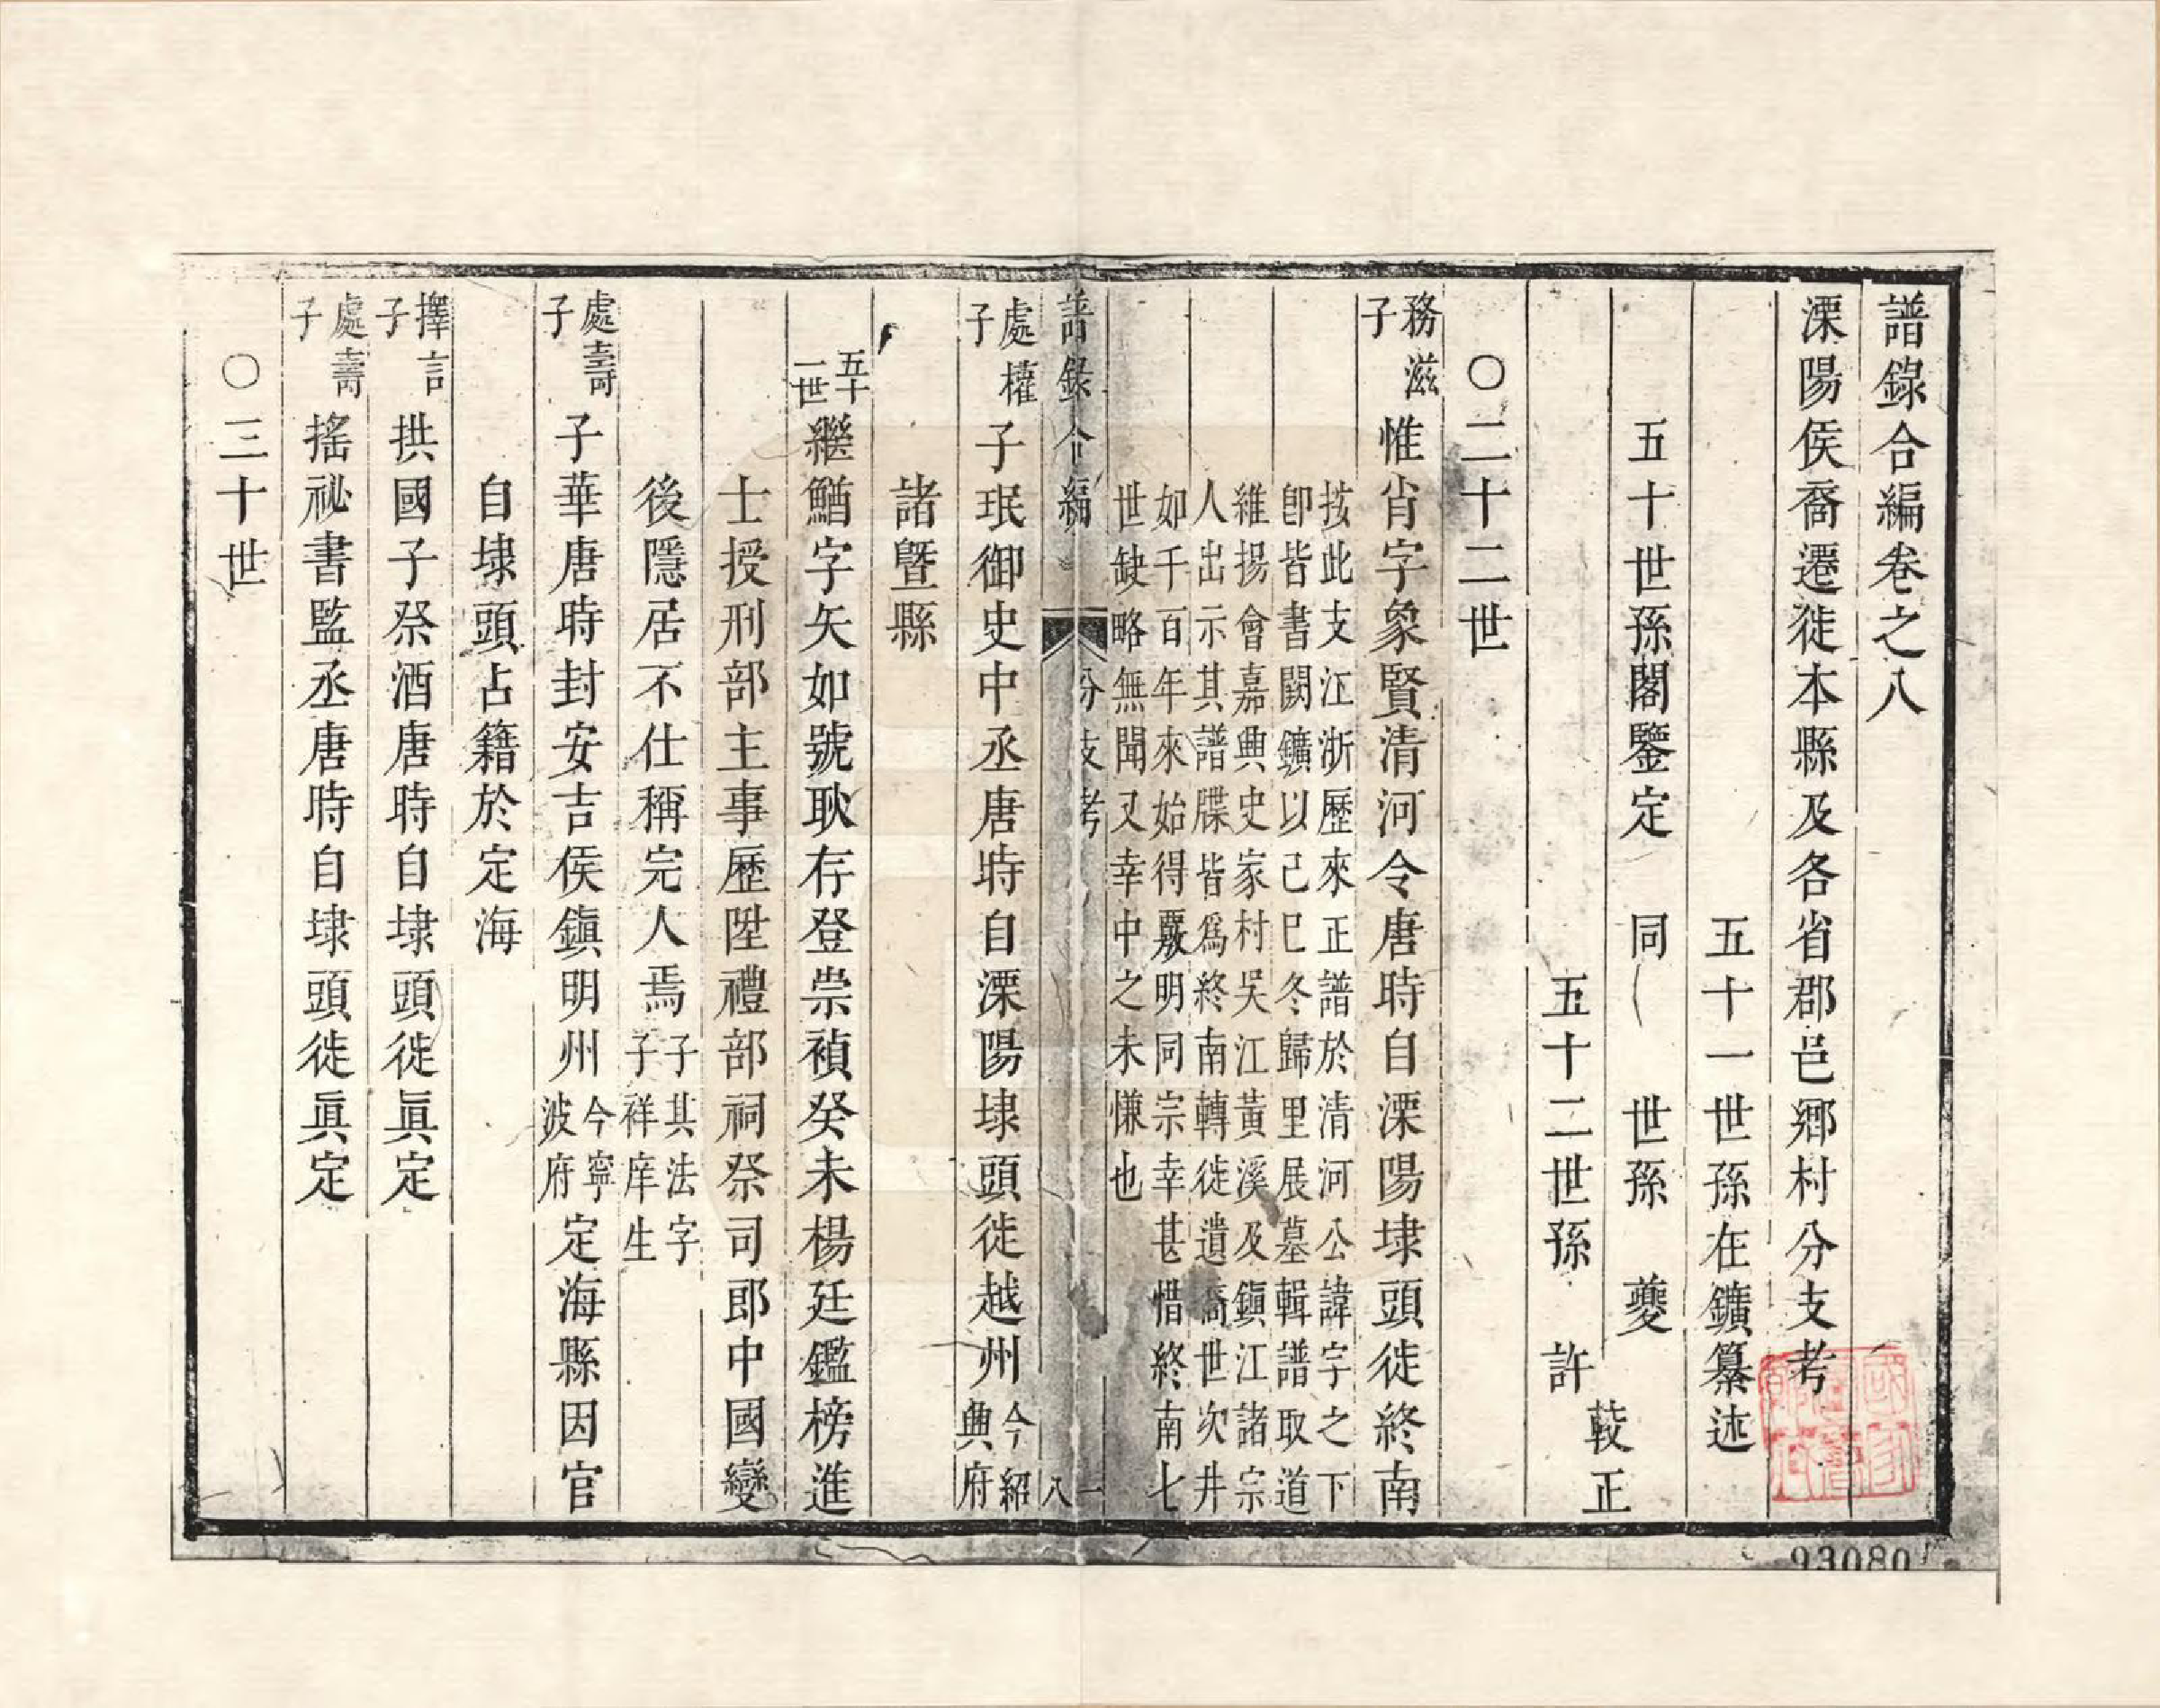 譜錄合編卷之八
溧陽侯裔遷徙本縣及各省郡邑鄉村分支考
五十一世孫在鑛纂述
五十世孫閣鑒定 同 世孫 夔
較正
五十二世孫 許
〇二十二世
務滋子 惟肖字象賢清河令唐時自溧陽埭頭徙終南
按此支江浙歷來正譜於清河公諱字之下
卽皆書闕鑛以己巳冬歸里展墓輯譜取道
維揚會嘉興史家村吳江黃溪及鎭江諸宗
人出示其譜牒皆爲終南轉徙遺裔世次井
如千百年來始得覈明同宗幸甚惜終南七
世缺略無聞又幸中之未慊也
譜錄合編 分支考 八 一
處權子 子珉御史中丞唐時自溧陽埭頭徙越州今紹興府
諸暨縣
五十一世 繼鰌字矢如號耿存登崇禎癸未楊廷鑑榜進
士授刑部主事歷陞禮部祠祭司郎中國變
後隱居不仕稱完人焉子其法字子祥庠生
處壽子 子華唐時封安吉侯鎭明州今寧波府定海縣因官
自埭頭占籍於定海
擇言子 拱國子祭酒唐時自埭頭徙眞定
處壽子 搖祕書監丞唐時自埭頭徙眞定
〇三十世
93080